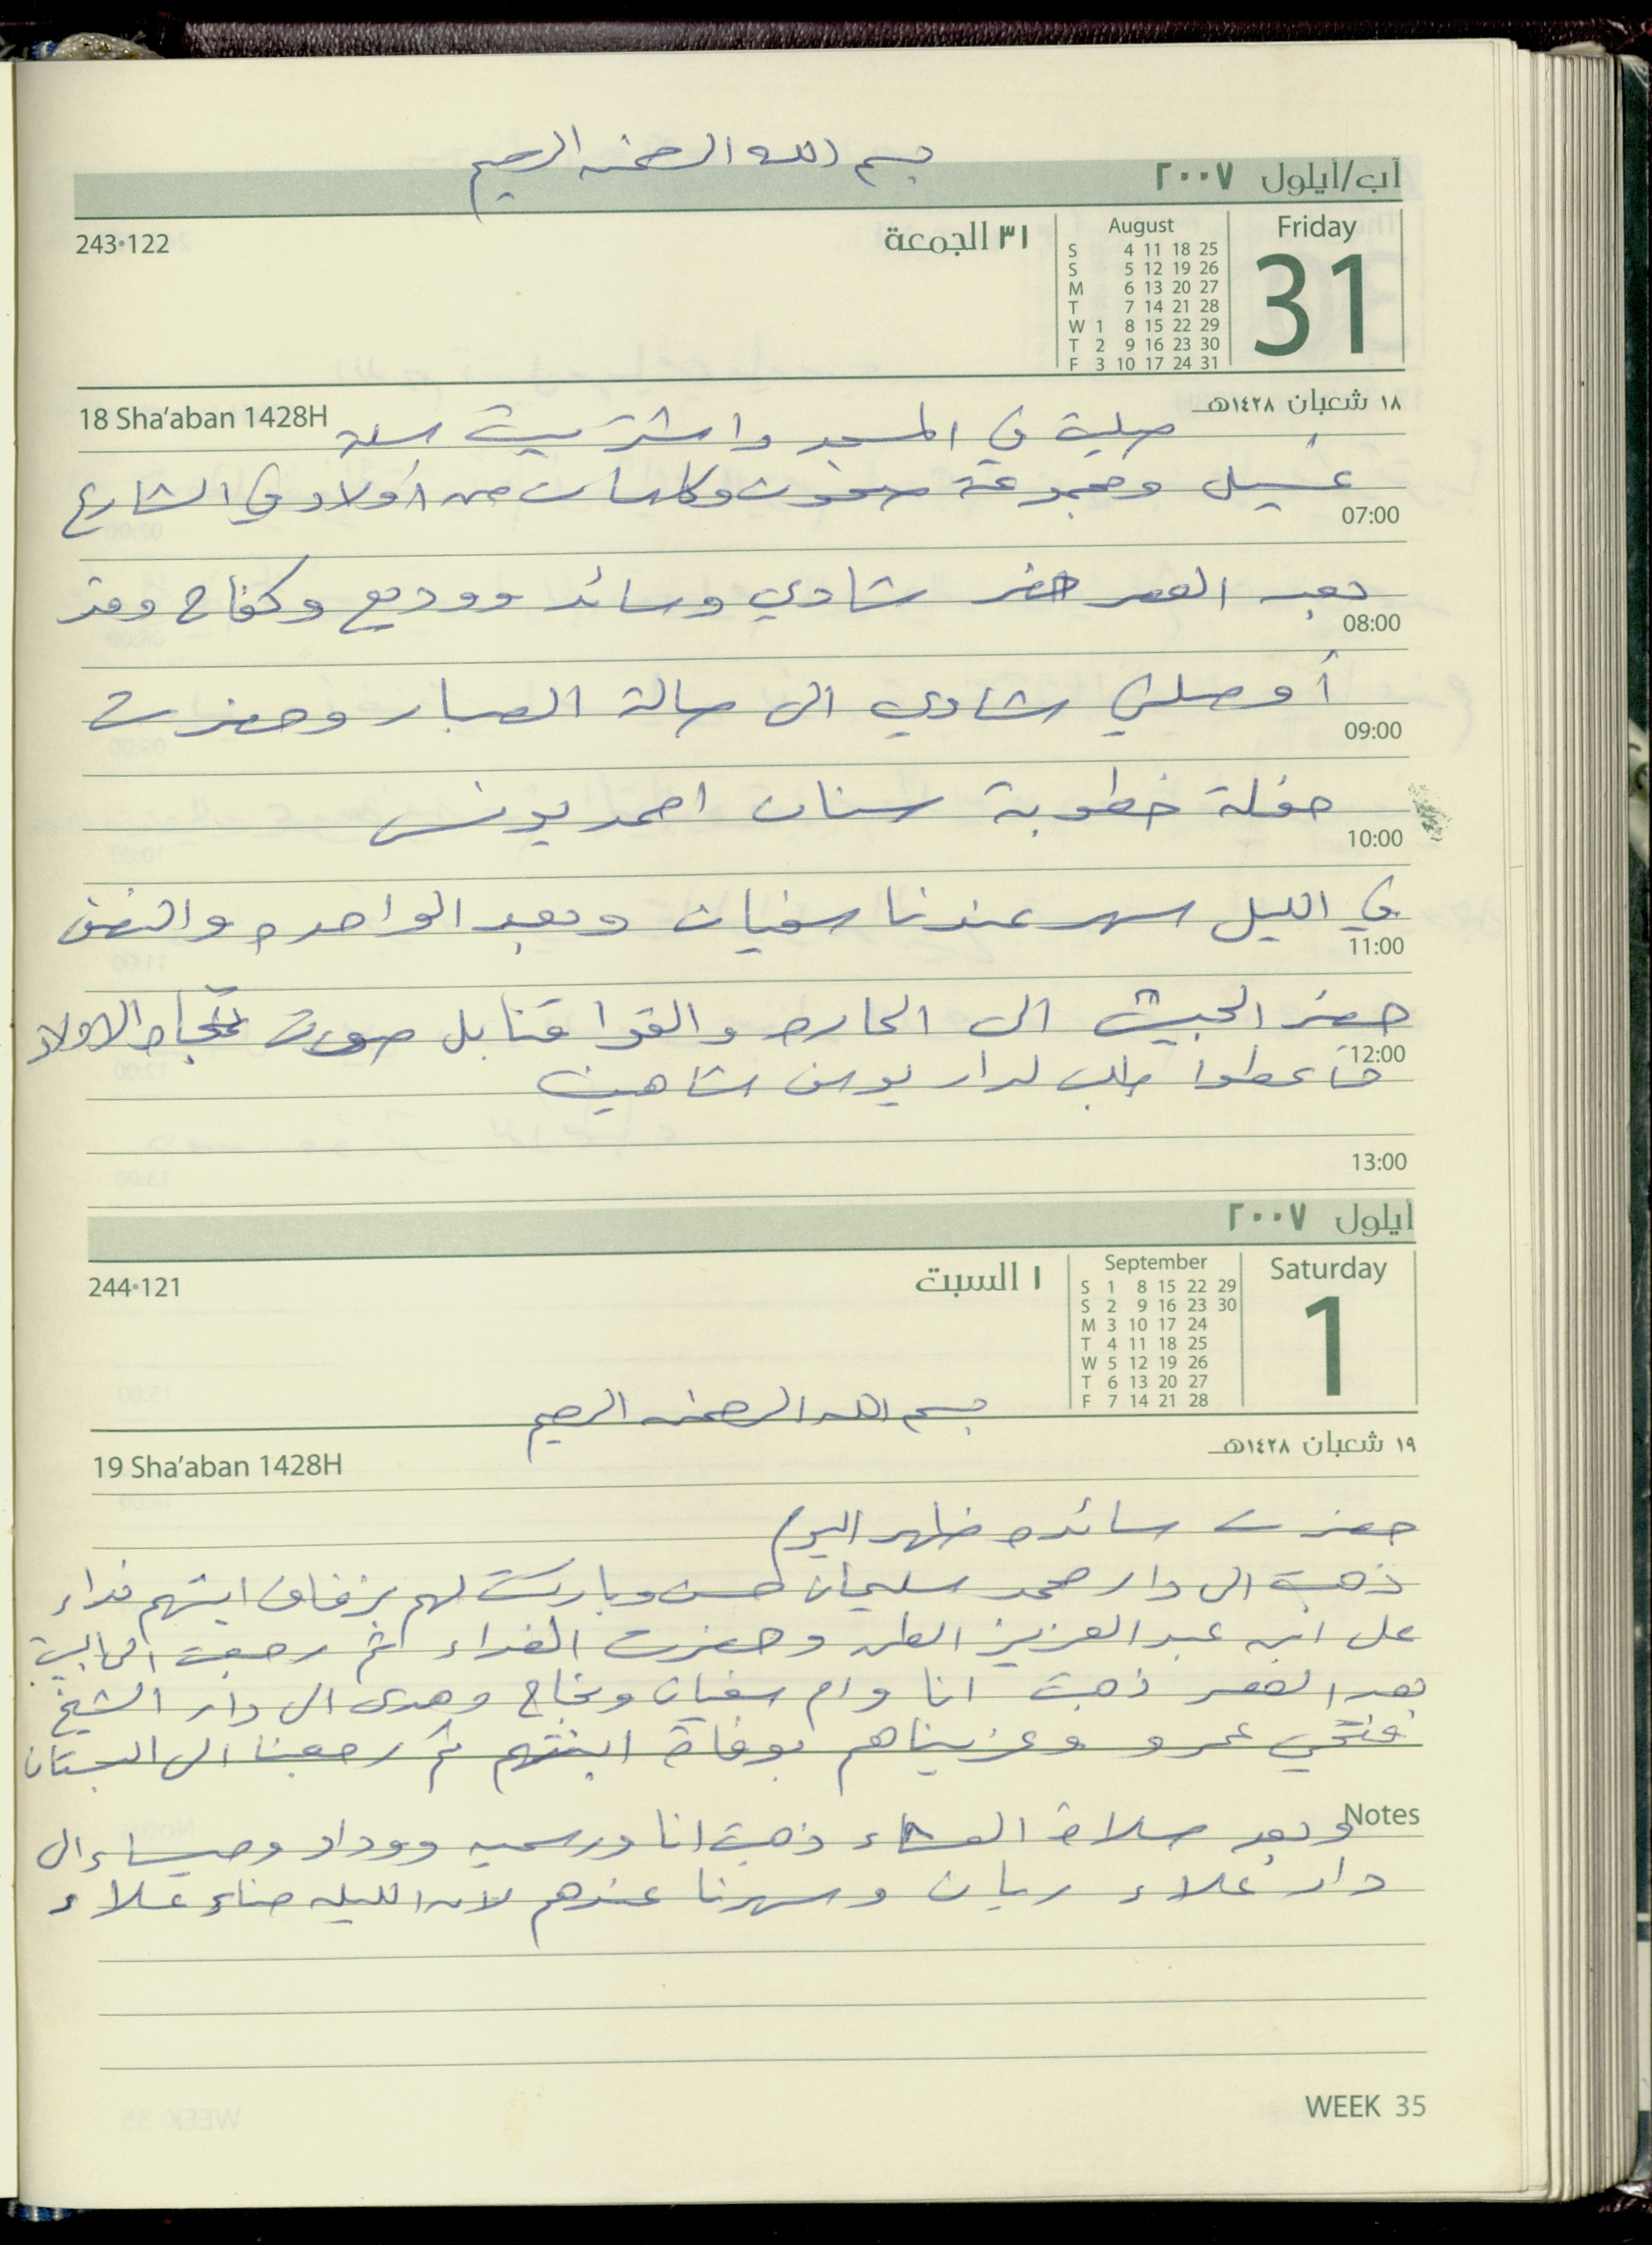 بسم الله الرحمن الرحيم
آب/أيلول ٢٠٠٧
Friday
31
August
S 4 11 18 25
S 5 12 19 26
M 6 13 20 27
T 7 14 21 28
W 1 8 15 22 29
T 2 9 16 23 30
F 3 10 17 24 31
٣١ الجمعة
243•122
١٨ شعبان ١٤٢٨هـ
18 Sha'aban 1428H
صليت في المسجد واشتريت سلة
غسيل ومجموعة صحون وكاسات من اولاد في الشارع
07:00
بعد العصر حضر شادي وسائد ووديع وكفاح وقد
08:00
أوصلني شادي الى صالة الصبار وحضرت
09:00
حفلة خطوبة سنان احمد يونس
10:00
في الليل سهر عندنا سفيان وبعد الواحده والنصف
11:00
حضر الجيش الى الحاره والقوا قنابل صوت تجاه الاولاد
12:00
لدار يوسف شاهين
13:00
أيلول ٢٠٠٧
Saturday
1
September
S 1 8 15 22 29
S 2 9 16 23 30
M 3 10 17 24
T 4 11 18 25
W 5 12 19 26
T 6 13 20 27
F 7 14 21 28
١ السبت
244•121
بسم الله الرحمن الرحيم
١٩ شعبان ١٤٢٨هـ
19 Sha'aban 1428H
حضرت سائده ظهر اليوم
ذهبت الى دار محمد سليمان حسن وباركت لهم بزفاف ابنتهم فداء
على ابن عبد العزيز وحضرت الغداء ثم رجعت الى البيت
بعد العصر ذهبت انا وام سفيان ونجاح وهدى الى دار الشيخ
فتحي عمرو وعزيناهم بوفاة ابنتهم ثم رجعنا الى البستان
Notes
وبعد صلاة العشاء ذهبت انا ورسميه ووداد وميساء الى
دار علاء ريان وسهرنا عندهم لان الليله حناء علاء
WEEK 35